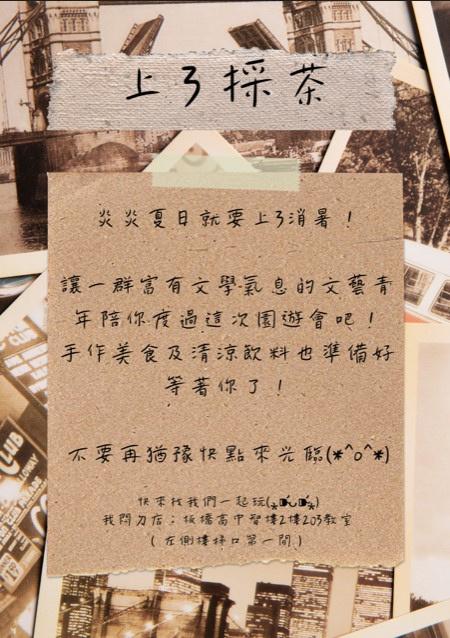 上ㄋ採茶
炎炎夏日就要上ㄋ消暑！
讓一群富有文學氣息的文藝青
年陪你度過這次園遊會吧！
手作美食及清涼飲料也準備好
等著你了！
不要再猶豫快點來光臨(*^o^*)
快來找我們一起玩(⁎⁍̴̛ᴗ⁍̴̛⁎)
我們ㄉ店：板橋高中智樓2樓203教室
（左側樓梯口第一間）
CLUB